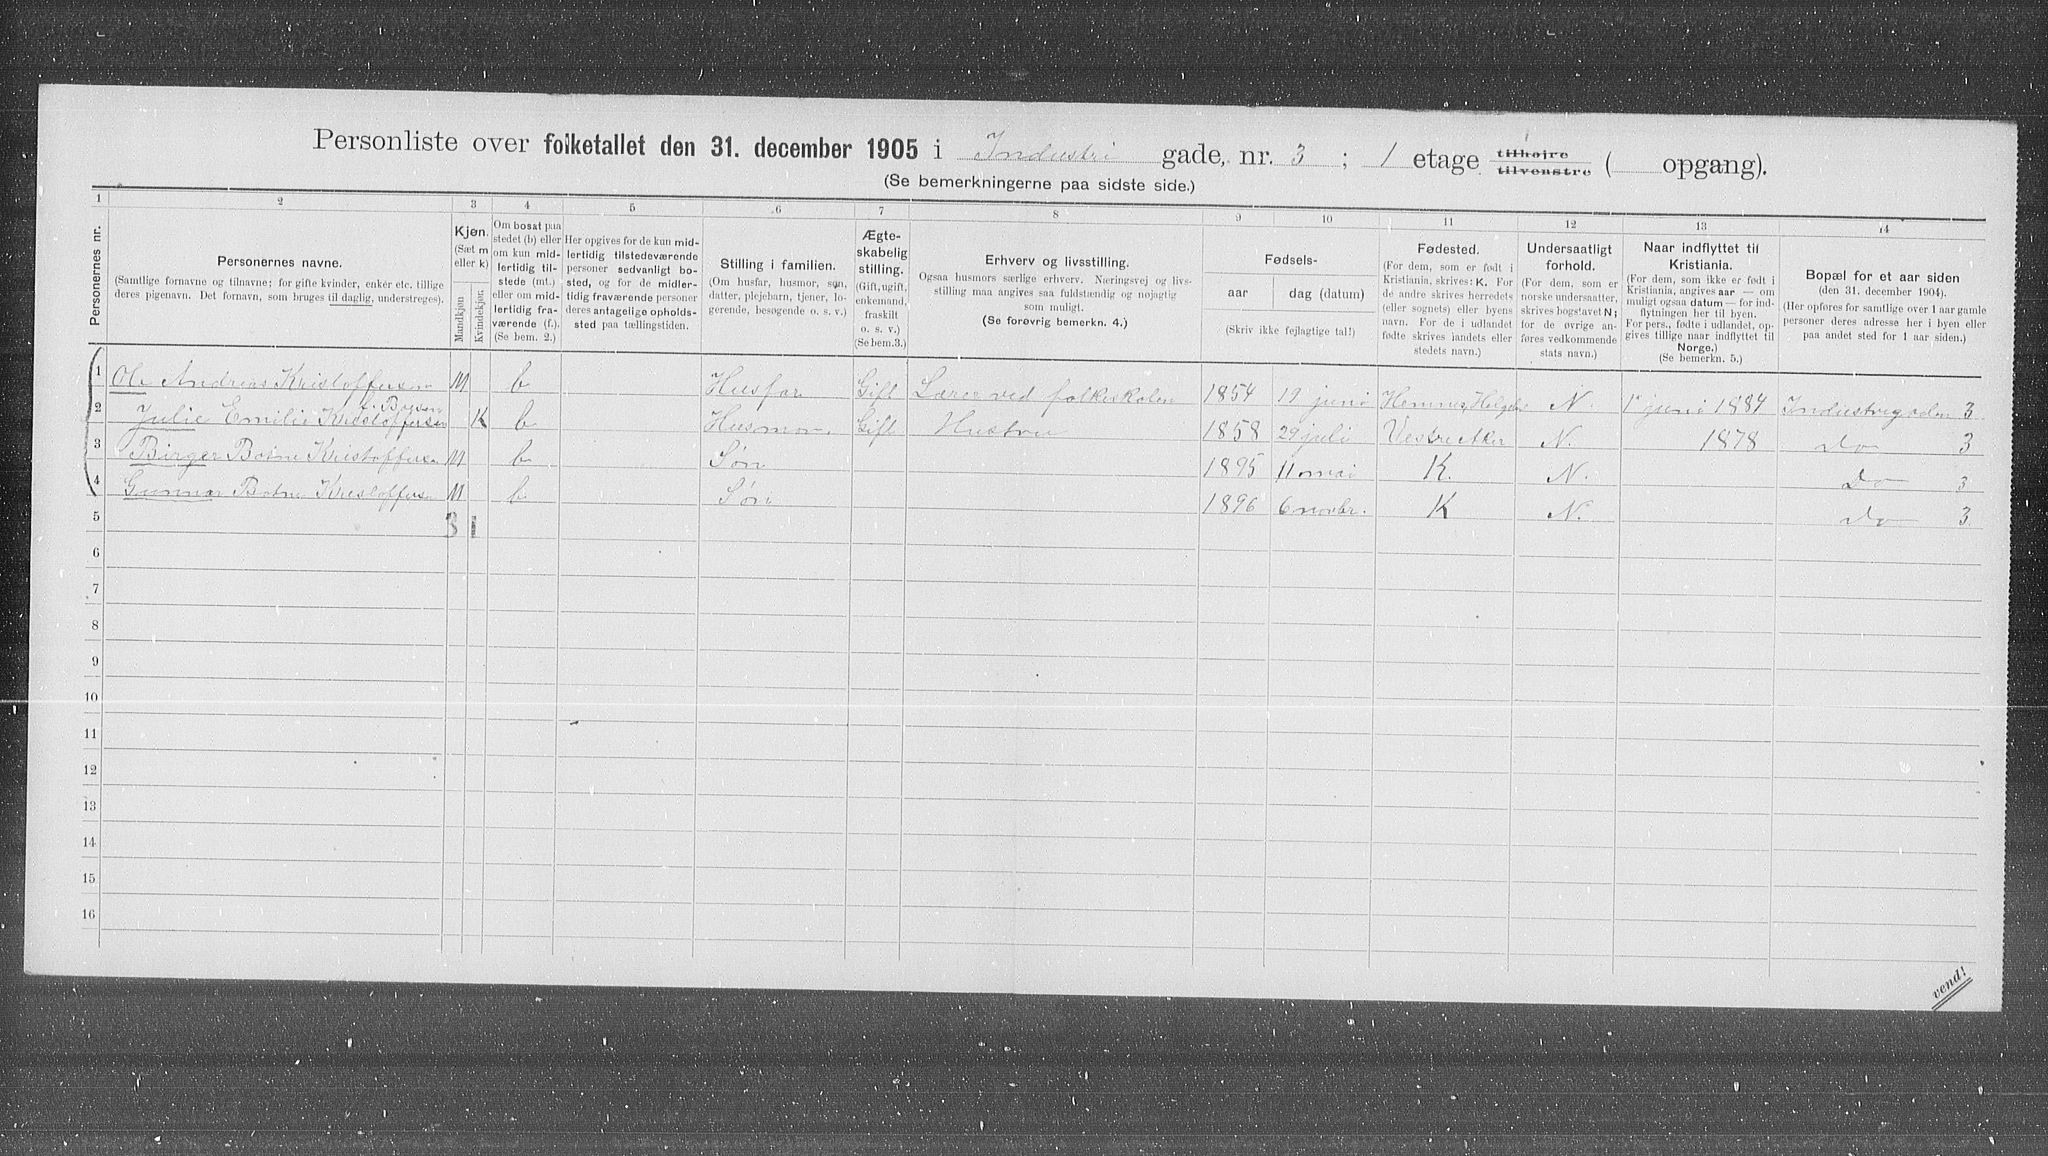 Personliste over folketallet den 31. december 1905 i Industri gade, nr. 3 ; 1 etage tilhøjre tilvenstre ( opgang).
(Se bemerkningerne paa sidste side.)
1 2 3 4 5 6 7 8 9 10 11 12 13 14
Personernes nr.
Personernes navne.
(Samtlige fornavne og tilnavne; for gifte kvinder, enker etc. tillige
deres pigenavn. Det fornavn, som bruges til daglig, understreges).
Kjøn.
(Sæt m
eller k)
Mandkjøn
Kvindekjøn.
Om bosat paa
stedet (b) eller
om kun mid-
lertidig til-
stede (mt.)
eller om mid-
lertidig fra-
værende (f.).
(Se bem. 2.)
Her opgives for de kun mid-
lertidig tilstedeværende
personer sedvanligt bo-
sted, og for de midler-
tidig fraværende personer
deres antagelige opholds-
sted paa tællingstiden.
Stilling i familien.
(Om husfar, husmor, søn,
datter, plejebarn, tjener, lo-
gerende, besøgende o. s. v.)
Ægte-
skabelig
stilling.
(Gift, ugift,
enkemand,
fraskilt
o. s. v.)
(Se bem. 3.)
Erhverv og livsstilling.
Ogsaa husmors særlige erhverv. Næringsvej og livs-
stilling maa angives saa fuldstændig og nøjagtig
som muligt.
(Se forøvrig bemerkn. 4.)
Fødsels-
aar
dag (datum)
(Skriv ikke fejlagtige tal!)
Fødested.
(For dem, som er født i
Kristiania, skrives: K. For
de andre skrives herredets
(eller sognets) eller byens
navn. For de i udlandet
fødte skrives landets eller
stedets navn.)
Undersaatligt
forhold.
(For dem, som er
norske undersaatter,
skrives bogstavet N;
for de øvrige an-
føres vedkommende
stats navn.)
Naar indflyttet til
Kristiania.
(For dem, som ikke er født i
Kristiania, angives aar — om
muligt ogsaa datum — for ind-
flytningen her til byen.
For pers., fødte i udlandet, op-
gives tillige naar indflyttet til
Norge.)
(Se bemerkn. 5.)
Bopæl for et aar siden
(den 31. december 1904).
(Her opføres for samtlige over 1 aar gamle
personer deres adresse her i byen eller
paa andet sted for 1 aar siden.)
1 Ole Andreas Kristoffersen M b Husfar Gift Lærer ved folkeskolen 1854 19 juni N. juni 1884 Industrigaden 3
2 Julie Emilie Kristoffersen K b Husmor Gift Hustru 1858 29 juli Vestre Aker N. 1878 Do 3
3 Birger Botne Kristoffersen M b Søn 1895 11 mai K. N. Do 3
4 Gunnar Botne Kristoffersen M b Søn 1896 6 novbr. K N. Do 3
5 3 1
6
7
8
9
10
11
12
13
14
15
16
vend!